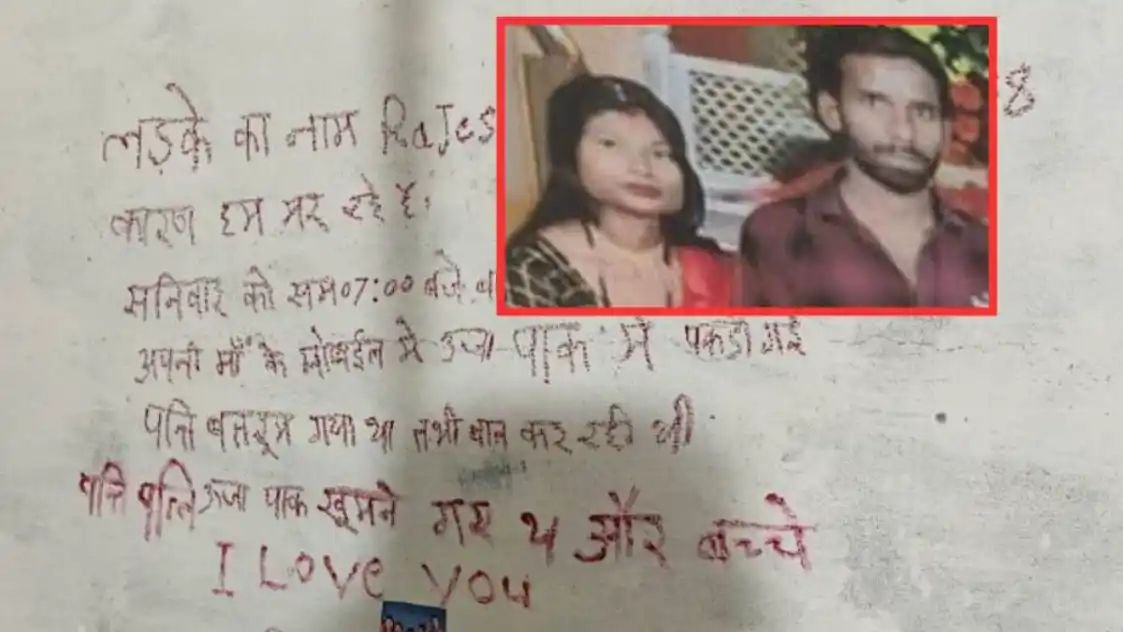 लड़के का नाम RaJes 8
कारण हम मर रहे है।
सनिवार को सम 07:00 बजे
अपनी माँ के मोबाईल मे उजा पाक में पकड़ी गई
पत्ति बतरूम गया था तभी बात कर रही थी
पत्ति पत्नि ऊजा पाक खूमने गए थ और बच्चे
I Love you